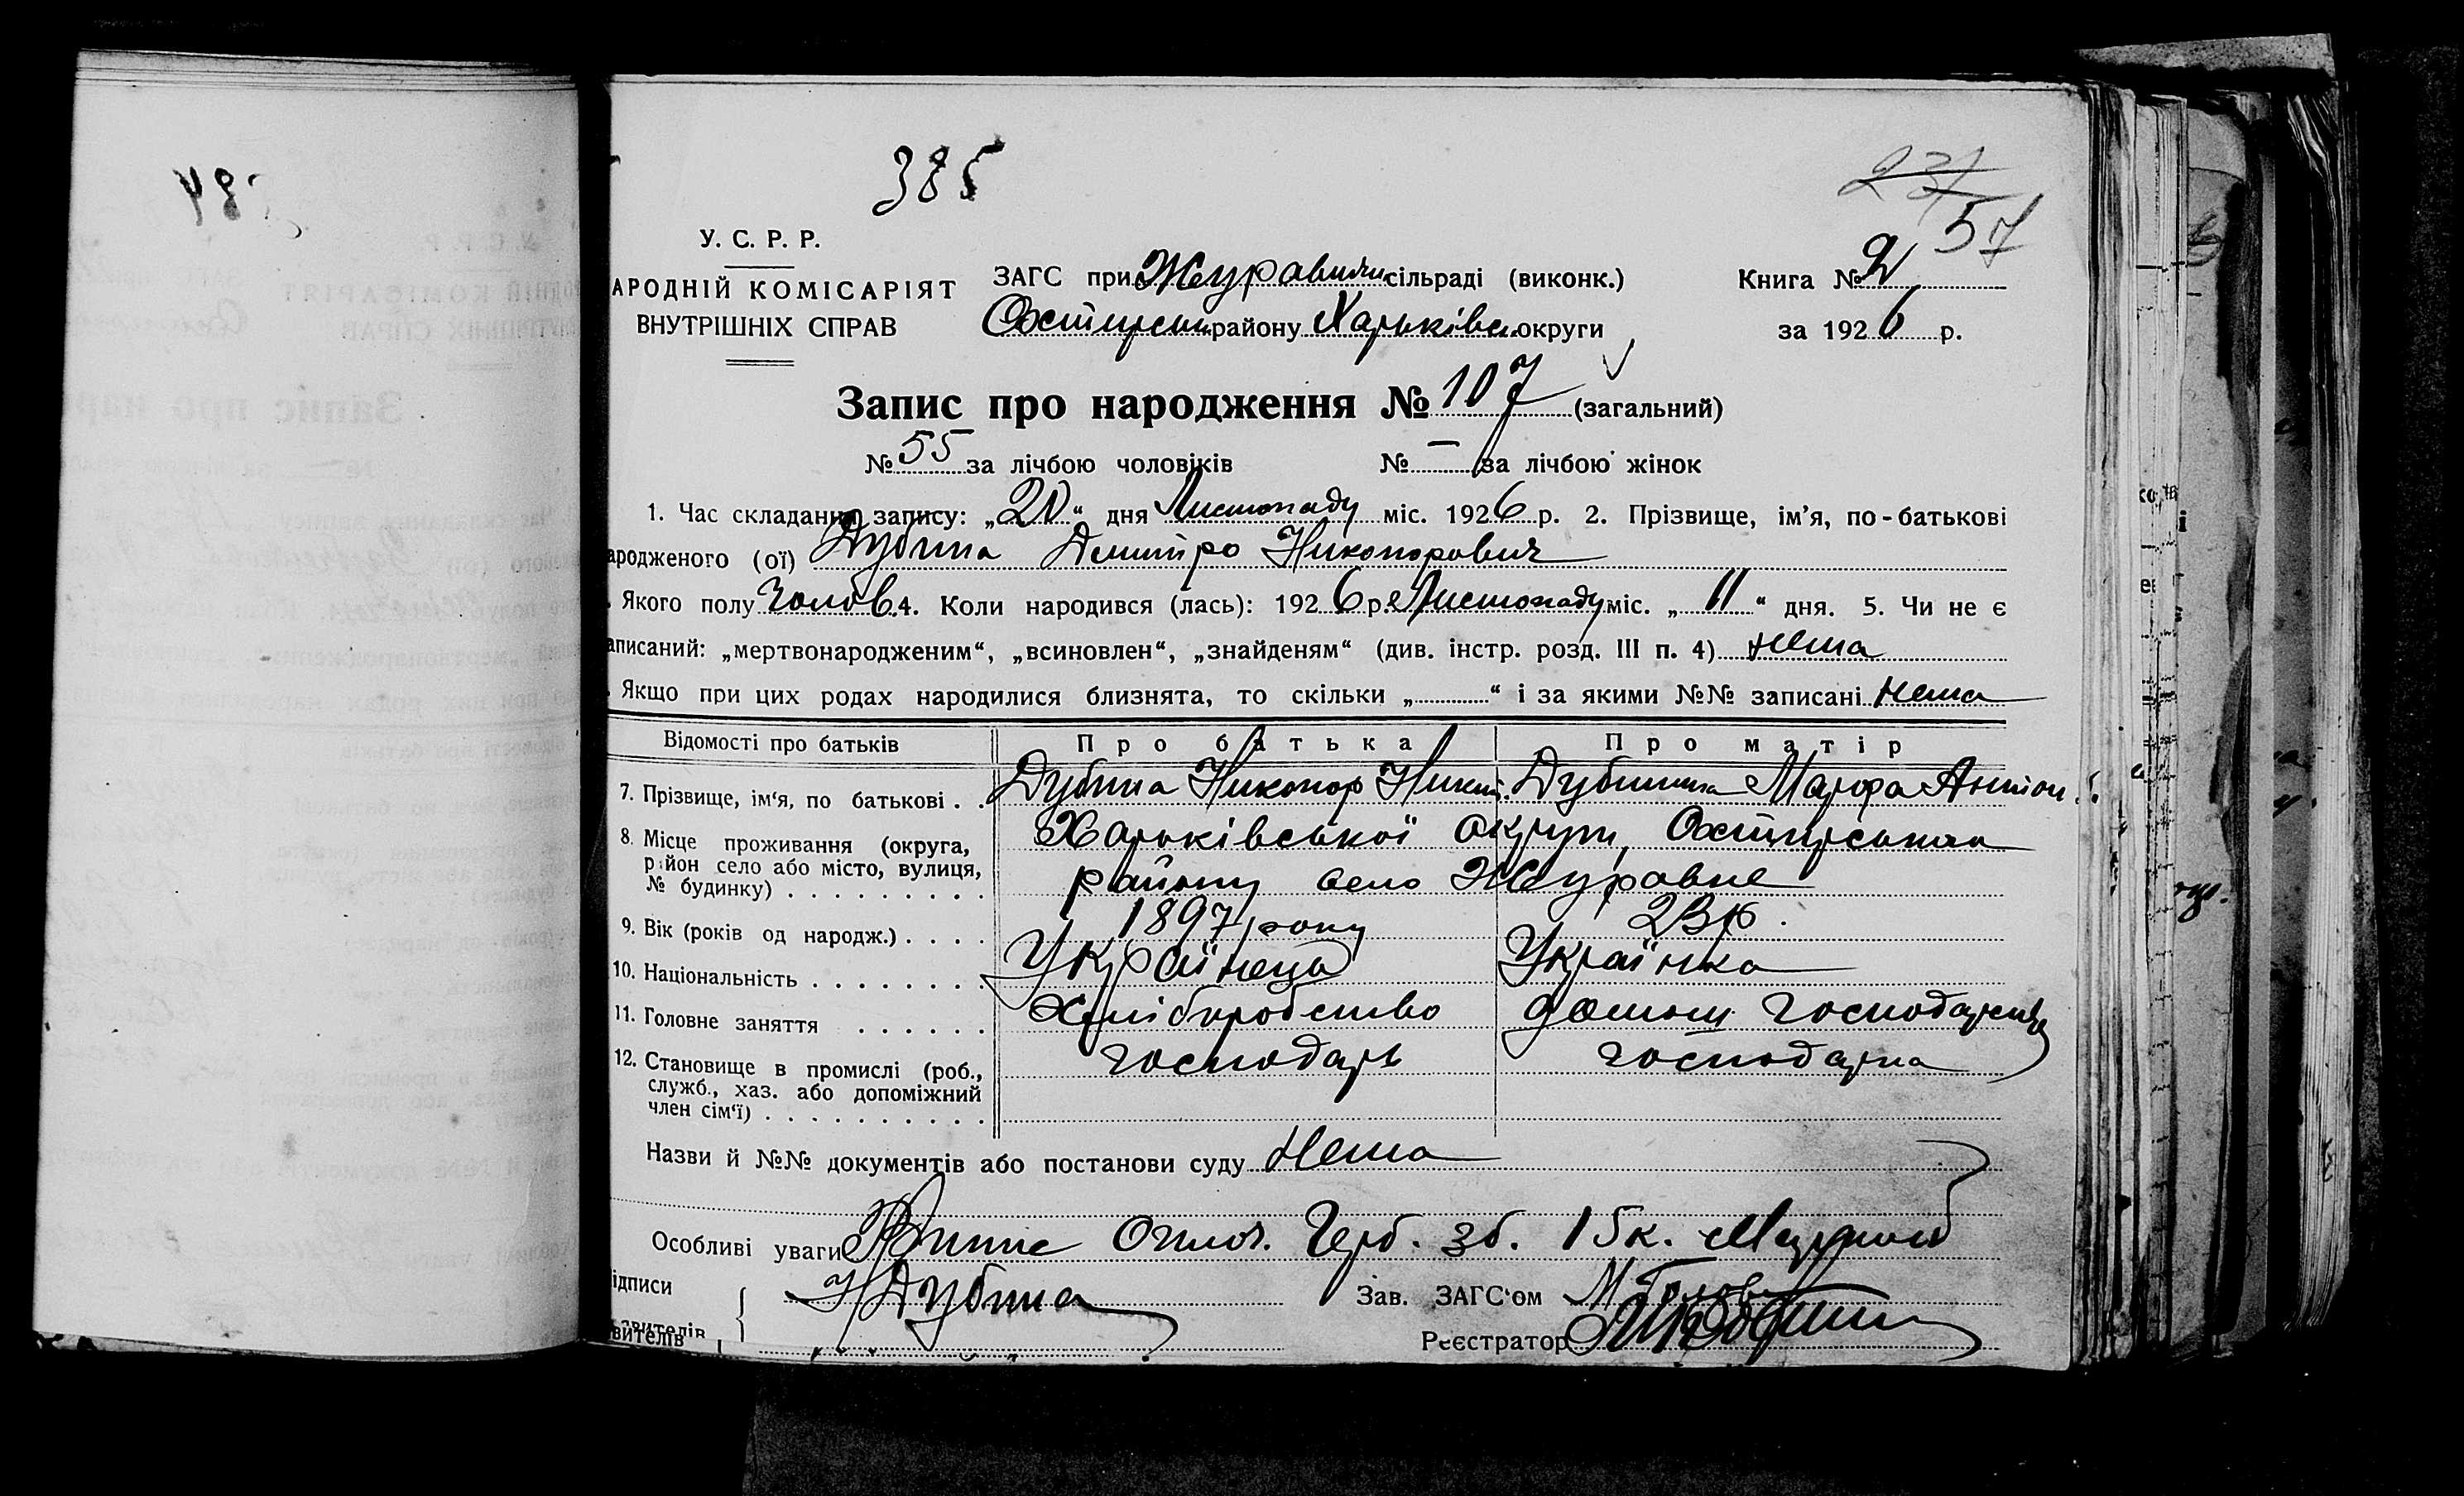 385
231
57
У. С. Р. Р.
АРОДНІЙ КОМІСАРІЯТ
ВНУТРІШНІХ СПРАВ
ЗАГС при сільраді (виконк.)
району округи
Книга № 2
за 1926 р.
Запис про народження № 107 (загальний)
№ 55 за лічбою чоловіків № — за лічбою жінок
1. Час складання запису: „20“ дня Листопаду міс. 1926 р. 2. Прізвище, ім'я, по-батькові
ародженого (ої) Дубина Дмитро Никопорович
. Якого полу Чолов. 4. Коли народився (лась): 1926 р. Листопаду міс. „11“ дня. 5. Чи не є
аписаний: „мертвонародженим“, „всиновлен“, „знайденям“ (див. інстр. розд. III п. 4) нема
. Якщо при цих родах народилися близнята, то скільки „ “ і за якими №№ записані нема
Відомості про батьків Про батька Про матір
7. Прізвище, ім'я, по батькові . . Дубина Никопор Дубинина Марфа Антон.
8. Місце проживання (округа, Харьківської округи, Охтирського
район село або місто, вулиця, району село Журавне
№ будинку) . . . . . . . . .
9. Вік (років од народж.) . . . . 1897 року 23 р.
10. Національність . . . . . . . . Українець Українка
11. Головне заняття . . . . . . Хліборобство домашн господарств
12. Становище в промислі (роб., господарь господарка
служб., хаз. або допоміжний
член сім'ї) . . . . . . . . . .
Назви й №№ документів або постанови суду Нема
Особливі уваги Герб. зб. 15к.
ідписи Н Дубина Зав. ЗАГС'ом
вителів Реєстратор